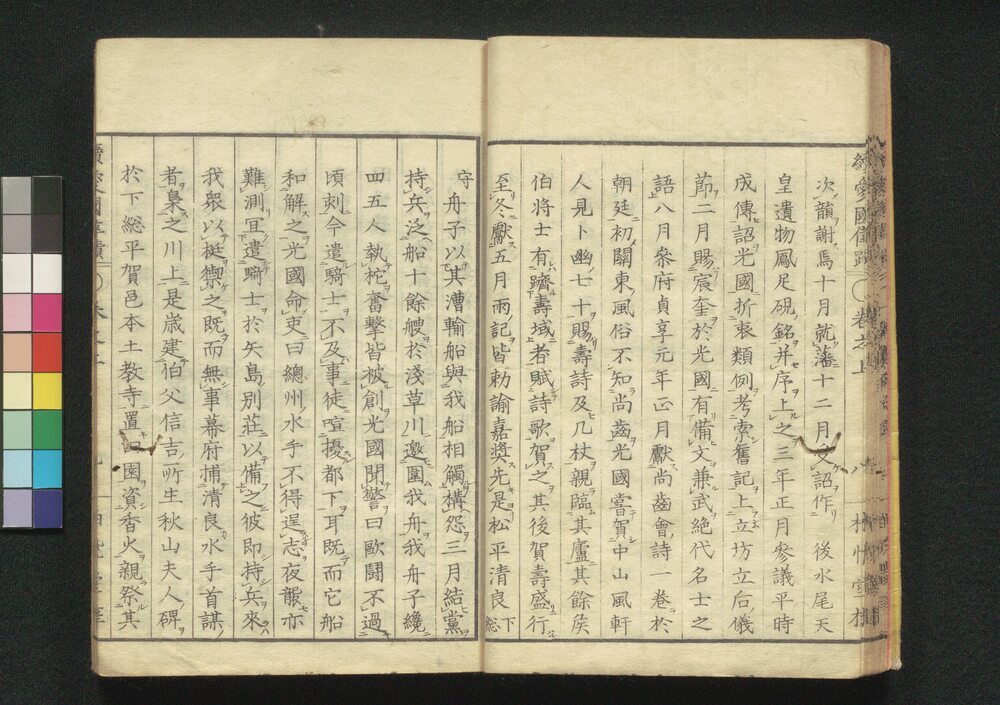 次韻謝焉十月就藩十二月 詔作 後水尾天
皇遺物鳳足硯銘并序上之三年正月參議平時
成傳詔光國折衷類例考索舊記上立坊立后儀
節二月賜宸奎於光國有備文兼武絶代名士之
語八月參府貞享元年正月獻尚齒會詩一卷於
朝廷初關東風俗不知尚齒光國嘗賀中山風軒
人見卜幽七十賜壽詩及几杖親臨其廬其餘矦
伯將士有躋壽域者賦詩歌賀之其後賀壽盛行
至冬獻五月雨記皆勅諭嘉奬先是松平清良下総
守舟子以其漕輸船與我船相觸構怨三月結黨
持兵泛船十餘艘於淺草川邀圍我舟我舟子纔
四五人執柁奮擊皆被創光國聞警曰歐鬪不過
頃刻今遣騎士不及事徒喧擾都下耳既而它船
和解之光國命吏曰總州水手不得逞志夜報亦
難測宜遣騎士於矢島別莊以備之彼即持兵來
我衆以梃禦之既而無事幕府捕清良水手首謀
者梟之川上是歳建伯父信吉所生秋山夫人碑
於下総平賀邑本土教寺置田園資香火親祭其